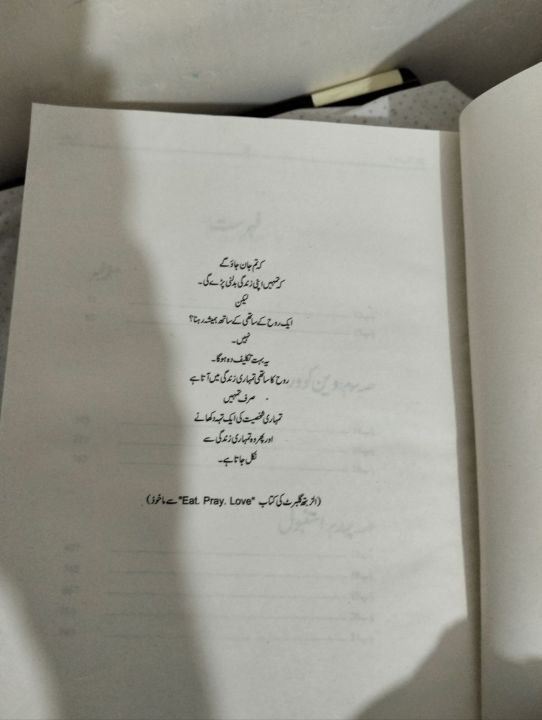 کہ تم جان جاؤ گے
کہ تمہیں اپنی زندگی بدلنی پڑے گی۔
لیکن
ایک روح کے ساتھی کے ساتھ ہمیشہ رہنا؟
نہیں۔
یہ بہت تکلیف دہ ہوگا۔
روح کا ساتھی تمہاری زندگی میں آتا ہے
صرف تمہیں
تمہاری شخصیت کی ایک تہہ دکھانے
اور پھر وہ تمہاری زندگی سے
نکل جاتا ہے۔
(الزبتھ گلبرٹ کی کتاب "Eat. Pray. Love" سے ماخوذ)